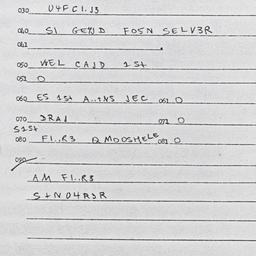 030 U4FC1.J3
040 SI GEXJD FOSN SELV3R
041
050 WEL CAJD 1St
051 O
060 ES 1St A..tNS JEC 061 O
070 3RAJ 071 O
S1St
080 F1..R3 Q MOOSHELE 081 O
090
AM F1..R3
StNO4R3R